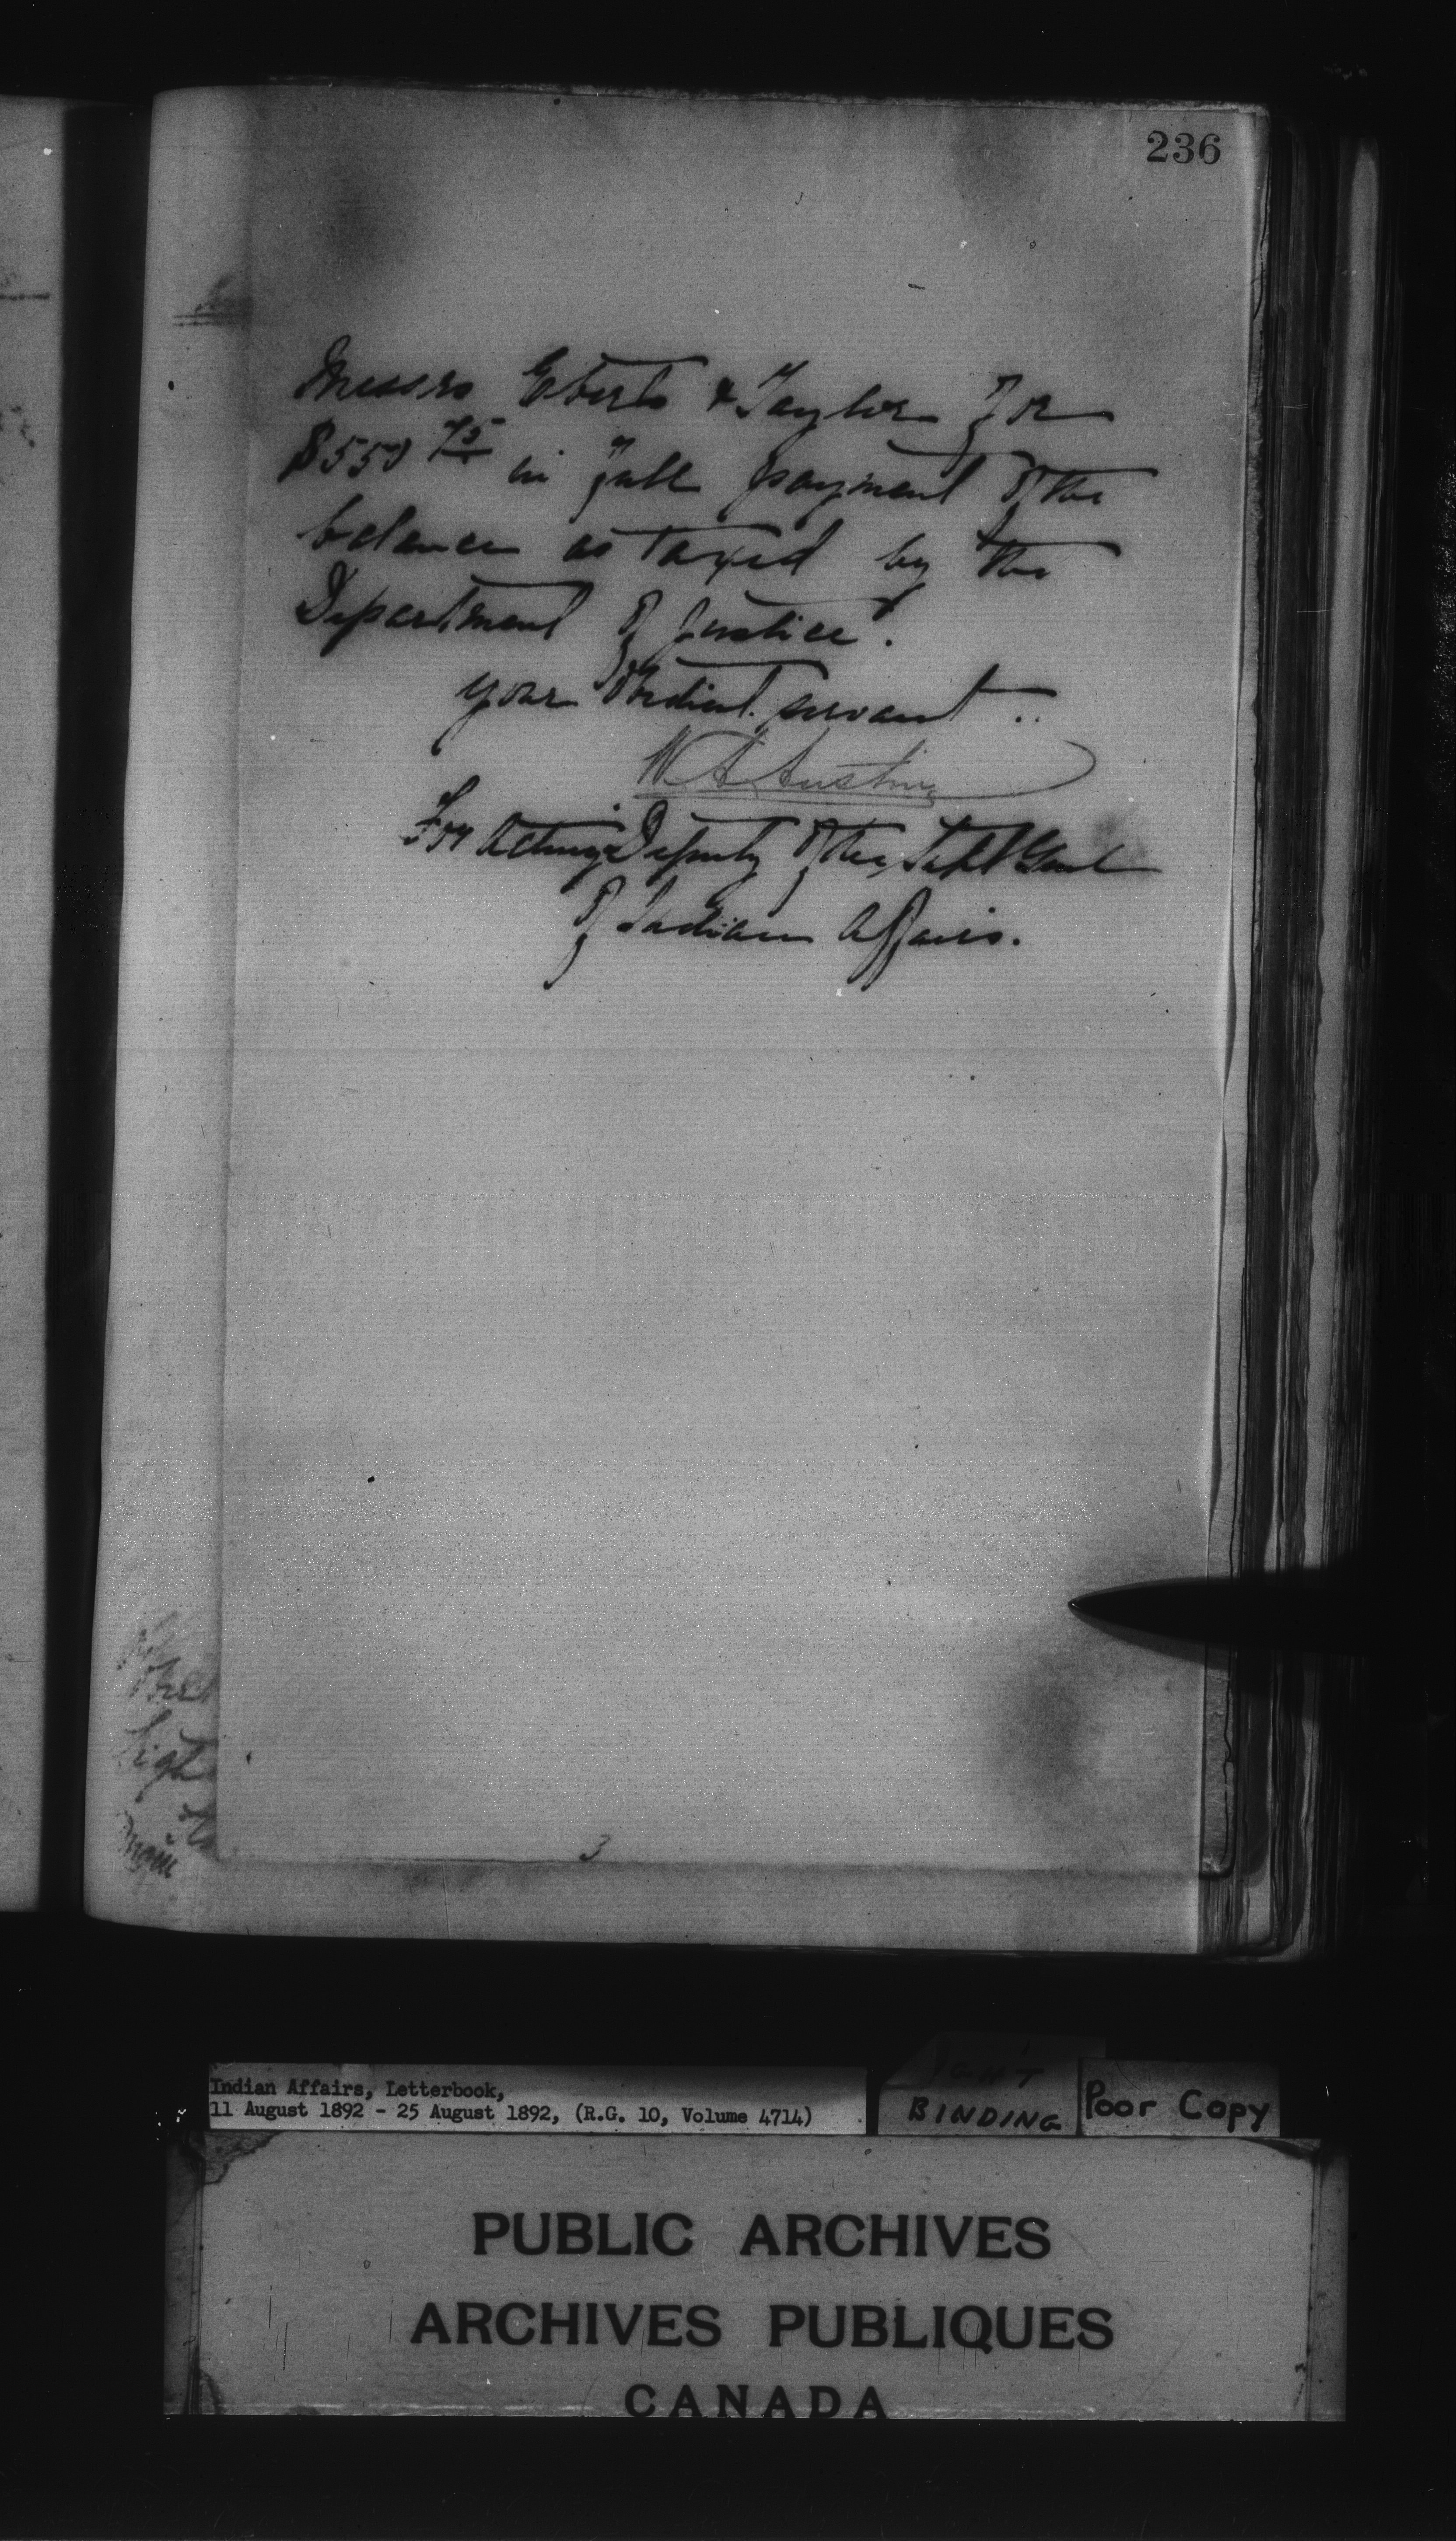 236
Messrs Eberts & Taylor for
$550 75 in full payment of the
balance as taxed by the
Department of Justice.
your obedient servant
W A Austin
For Acting Deputy of the Supt Genl
of Indian Affairs.
3
Indian Affairs, Letterbook,
11 August 1892 - 25 August 1892, (R.G. 10, Volume 4714)
BINDING
Poor Copy
PUBLIC ARCHIVES
ARCHIVES PUBLIQUES
CANADA